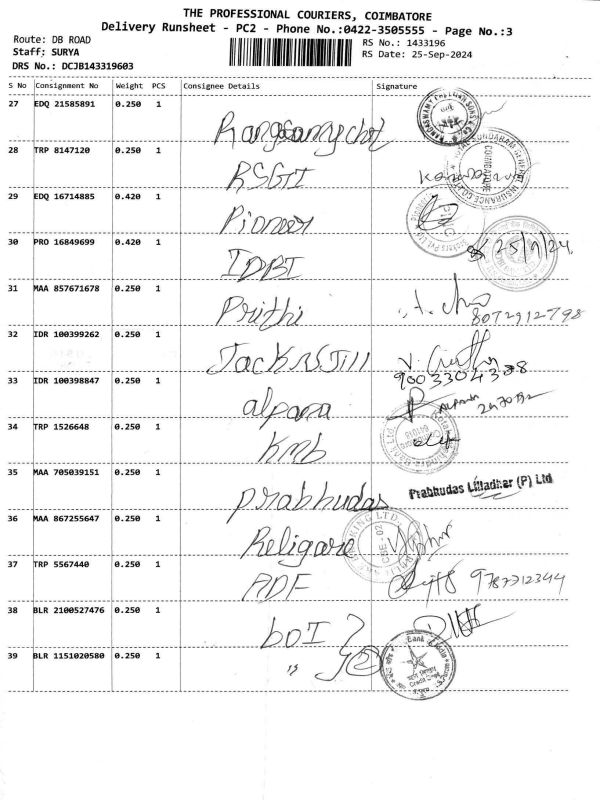 THE PROFESSIONAL COURIERS, COIMBATORE
Delivery Runsheet - PC2 - Phone No.:0422-3505555 - Page No.:3
Route: DB ROAD
RS No.: 1433196
Staff; SURYA
RS Date: 25-Sep-2024
DRS No.: DCJB143319603
S No Consignment No Weight PCS Consignee Details Signature
27 EDQ 21585891 0.250 1
28 TRP 8147120 0.250 1 RSGI
29 EDQ 16714885 0.420 1 Pioneer
30 PRO 16849699 0.420 1 IDBI 25/9/24
31 MAA 857671678 0.250 1 Prithi
8072912798
32 IDR 100399262 0.250 1 Jack N Jill
33 IDR 100398847 0.250 1 alpana
34 TRP 1526648 0.250 1 KMB
35 MAA 705039151 0.250 1 Prabhudas Prabhudas Lilladher (P) Ltd
36 MAA 867255647 0.250 1 Religare
37 TRP 5567440 0.250 1 ADF
38 BLR 2100527476 0.250 1 BOI
39 BLR 1151020580 0.250 1 " 2